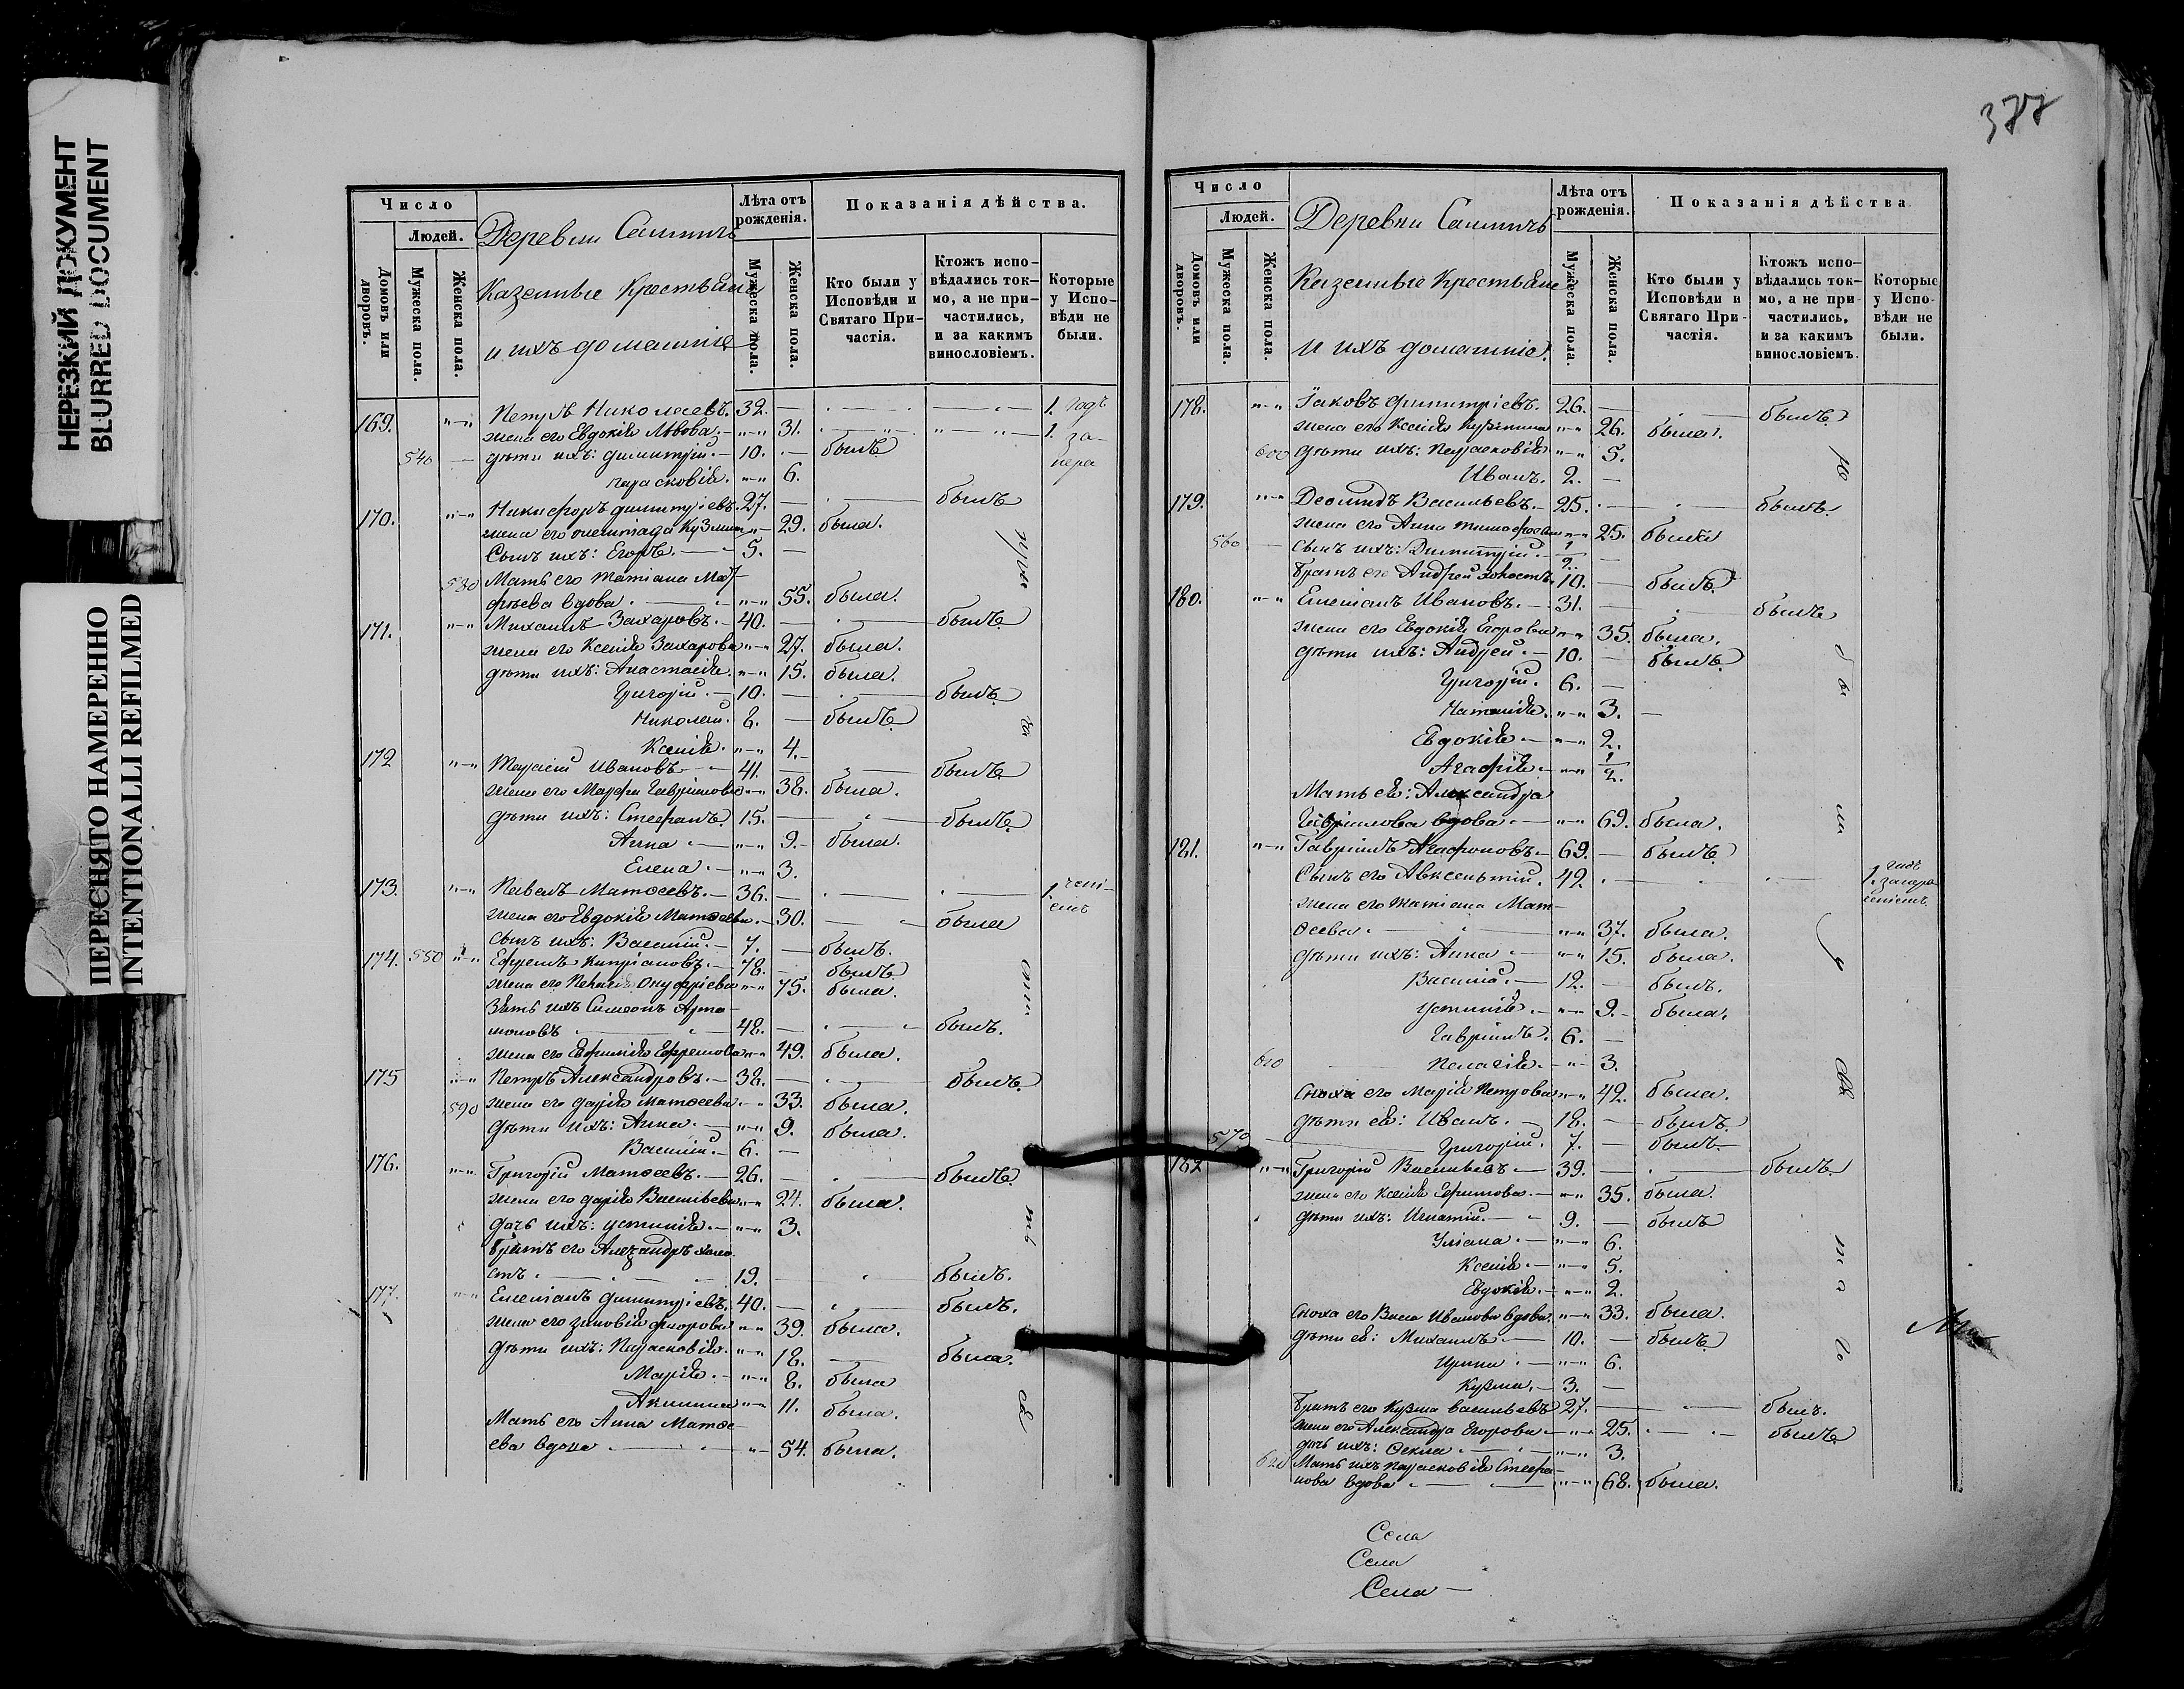 НЕРЕЗКИЙ ДОКУМЕНТ
BLURRED DOCUMENT
ПЕРЕСНЯТО НАМЕРЕННО
INTENTIONALLI REFILMED
Число
Людей.
Домовъ или дворовъ.
Мужеска пола.
Женска пола.
Деревни
Казенные Крестьяне
и ихъ домашніе
Лѣта отъ рожденія.
Мужеска пола.
Женска пола.
Показанія дѣйства.
Кто были у Исповѣди и Святаго Причастія.
Ктожъ исповѣдались токмо, а не причастились, и за какимъ винословіемъ.
Которые у Исповѣди не были.
169. Петръ Николаевъ. 32. 1.
жена его Евдокія Львова. 31. 1.
540 дѣти ихъ: Димитрій. 10. былъ
Парасковія. 6.
170. Никифоръ Димитріевъ. 27. былъ
жена его Кузмина 29. была.
Сынъ ихъ: Егоръ. 5.
580 Мать его Татіана
вдова. 55. была.
171. Михаилъ Захаровъ. 40. былъ
жена его Ксенія Захарова 27. была.
дѣти ихъ: Анастасія. 15. была.
Григорій. 10. былъ
Николай. 8. былъ
Ксенія. 4.
172 Тарасій Ивановъ 41. былъ
жена его Марфа Гавріилова 38. была.
дѣти ихъ: Стефанъ. 15. былъ
Анна 9. была.
Елена. 3.
173. Павелъ Матѳеевъ. 36. 1.
жена его Евдокія Матѳеева 30. была
сынъ ихъ: Василій. 7. былъ.
174. 550 Ефремъ Кипріановъ. 78. былъ
жена его Пелагія Онуфріева 75. была.
Зять ихъ Симеонъ Арта-
моновъ 48. былъ.
жена его Евфимія Ефремова 49. была.
175 Петръ Александровъ. 38. былъ.
590 жена его Дарія Матѳеева 33. была.
Дѣти ихъ: Анна. 9. была.
Василій. 6.
176. Григорій Матѳеевъ. 26. былъ
жена его Дарія Васильева 24. была.
дочь ихъ: Устинія. 3.
Братъ его Александръ холо-
стъ. 19. былъ.
177. Емеліанъ Димитріевъ. 40. былъ.
жена его Зиновія Ѳиорова 39. была.
дѣти ихъ: Парасковія. 18. была.
Марія. 8. была
Акилина 11. была.
Мать его Анна Матѳе-
ева вдова 54. была.
377
Число
Людей.
Домовъ или дворовъ.
Мужеска пола.
Женска пола.
Деревни
Казенные Крестьяне
и ихъ домашніе.
Лѣта отъ рожденія.
Мужеска пола.
Женска пола.
Показанія дѣйства
Кто были у Исповѣди и Святаго Причастія.
Ктожъ исповѣдались токмо, а не причастились, и за какимъ винословіемъ.
Которые у Исповѣди не были.
178. Іаковъ Димитріевъ. 26. былъ
жена его Ксенія Кузмина 26. была.
600 дѣти ихъ: Парасковія 5.
Иванъ. 2.
179. Леонидъ Васильевъ. 25. былъ.
жена его Анна Тимофеева 25. была
560 Сынъ ихъ: Димитрій. 1/2.
Братъ его Андрей холостъ 10. былъ
180. Емеліанъ Ивановъ. 31. былъ
жена его Евдокія Егорова 35. была.
дѣти ихъ: Андрей. 10. былъ
Григорій. 6.
Наталія. 3.
Евдокія 2.
Агафія. 1/2.
Мать ея: Александра
Гавріилова вдова. 69. была.
181. Гавріилъ Агафоновъ. 69. былъ.
Сынъ его Авксентій. 49. 1.
жена его Татіана Мат-
ѳеева. 37. была.
дѣти ихъ: Анна 15. была.
Василій. 12. былъ.
Устинія. 9. была.
Гавріилъ. 6.
610 Пелагія. 3.
Сноха его Марія Петрова 42. была.
дѣти ея: Иванъ. 18. былъ
570 Григорій. 7. былъ
182 Григорій Васильевъ 39. былъ
жена его Ксенія Ефимова. 35. была.
дѣти ихъ: Игнатій. 9. былъ
Уліана. 6.
Ксенія. 5.
Евдокія. 2.
Сноха его Васса Иванова вдова. 33. была.
дѣти ея: Михаилъ. 10. былъ
Ирина. 6.
Кузма. 3.
Братъ его Кузма Васильевъ 27. былъ.
жена его Александра Егорова 25. былъ
дочь ихъ: Ѳекла 3.
620 Мать ихъ Парасковія Стефа-
нова вдова 68. была.
Села
Села
Села